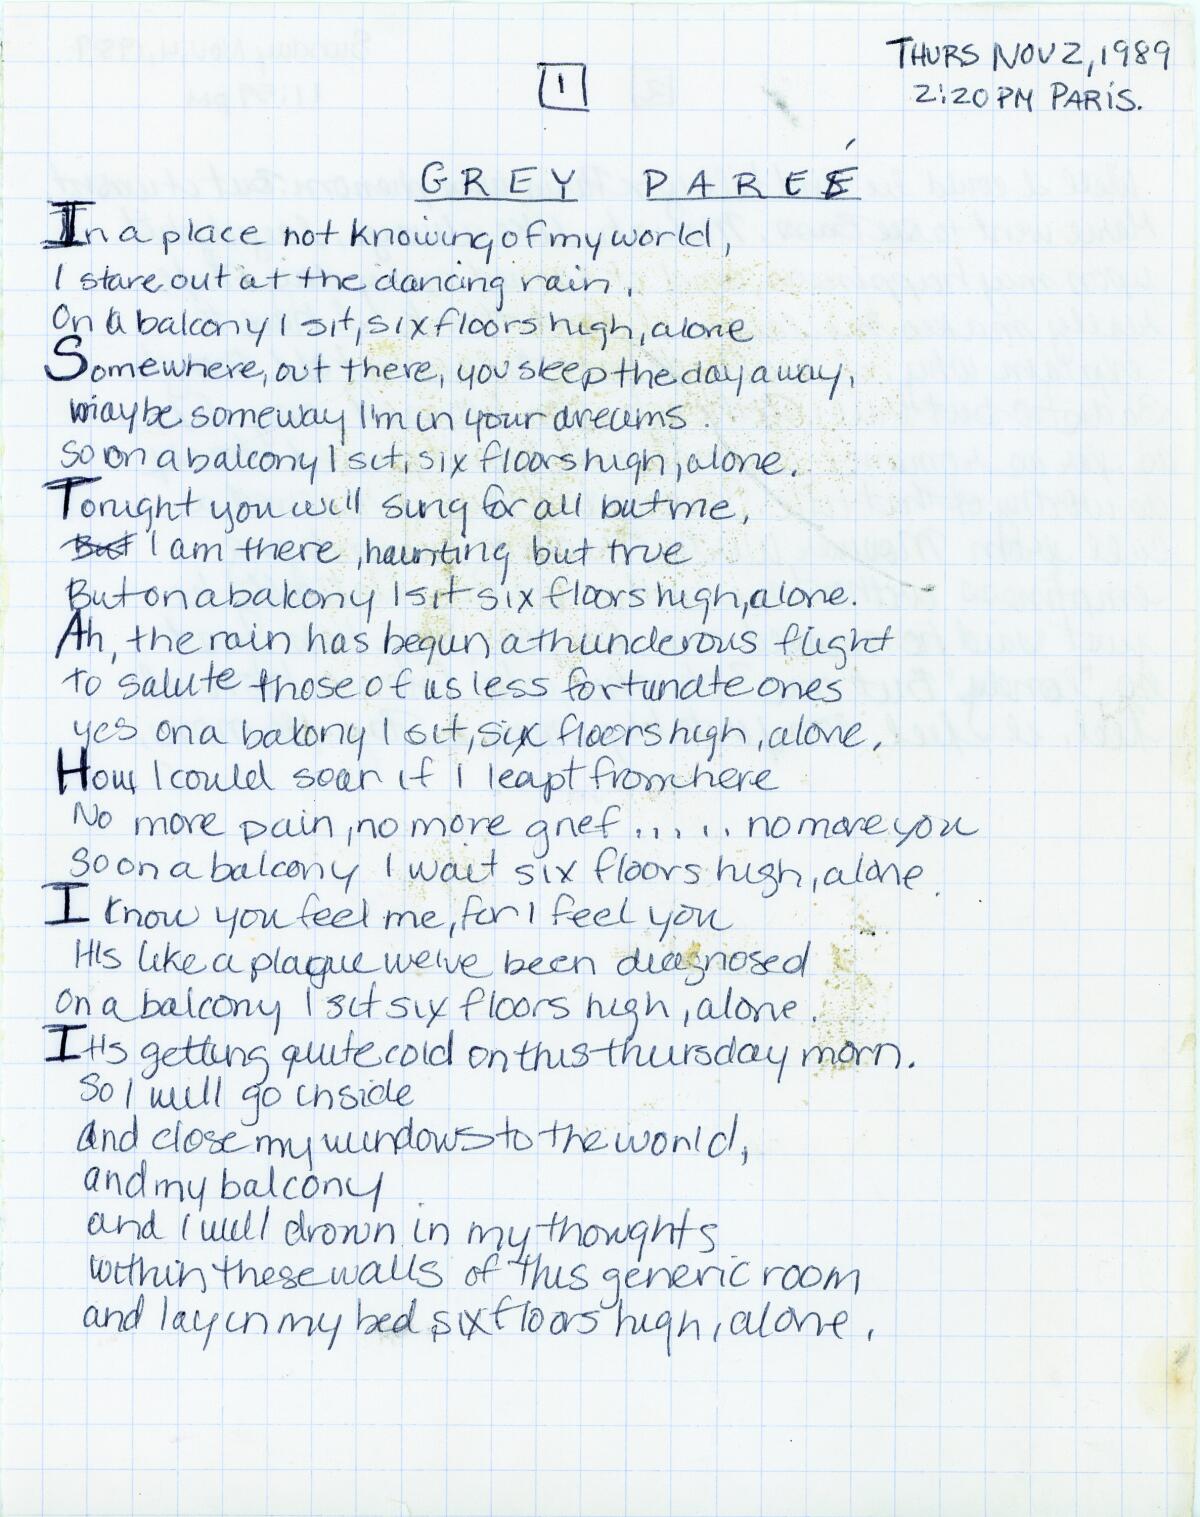 THURS NOV 2, 1989
2:20PM PARIS.
1
GREY PAREÉ
In a place not knowing of my world,
I stare out at the dancing rain.
On a balcony I sit, six floors high, alone
Somewhere, out there, you sleep the day away,
maybe someway I'm in your dreams.
So on a balcony I sit, six floors high, alone.
Tonight you will sing for all but me,
But I am there, haunting but true
But on a balcony I sit six floors high, alone.
Ah, the rain has begun a thunderous flight
to salute those of us less fortunate ones
yes on a balcony I sit, six floors high, alone.
How I could soar if I leapt from here
No more pain, no more grief ..... no more you
So on a balcony I wait six floors high, alone.
I know you feel me, for I feel you
It's like a plague we've been diagnosed
On a balcony I sit six floors high, alone.
It's getting quite cold on this thursday morn.
So I will go inside
and close my windows to the world,
and my balcony
and I will drown in my thoughts
within these walls of this generic room
and lay in my bed six floors high, alone.